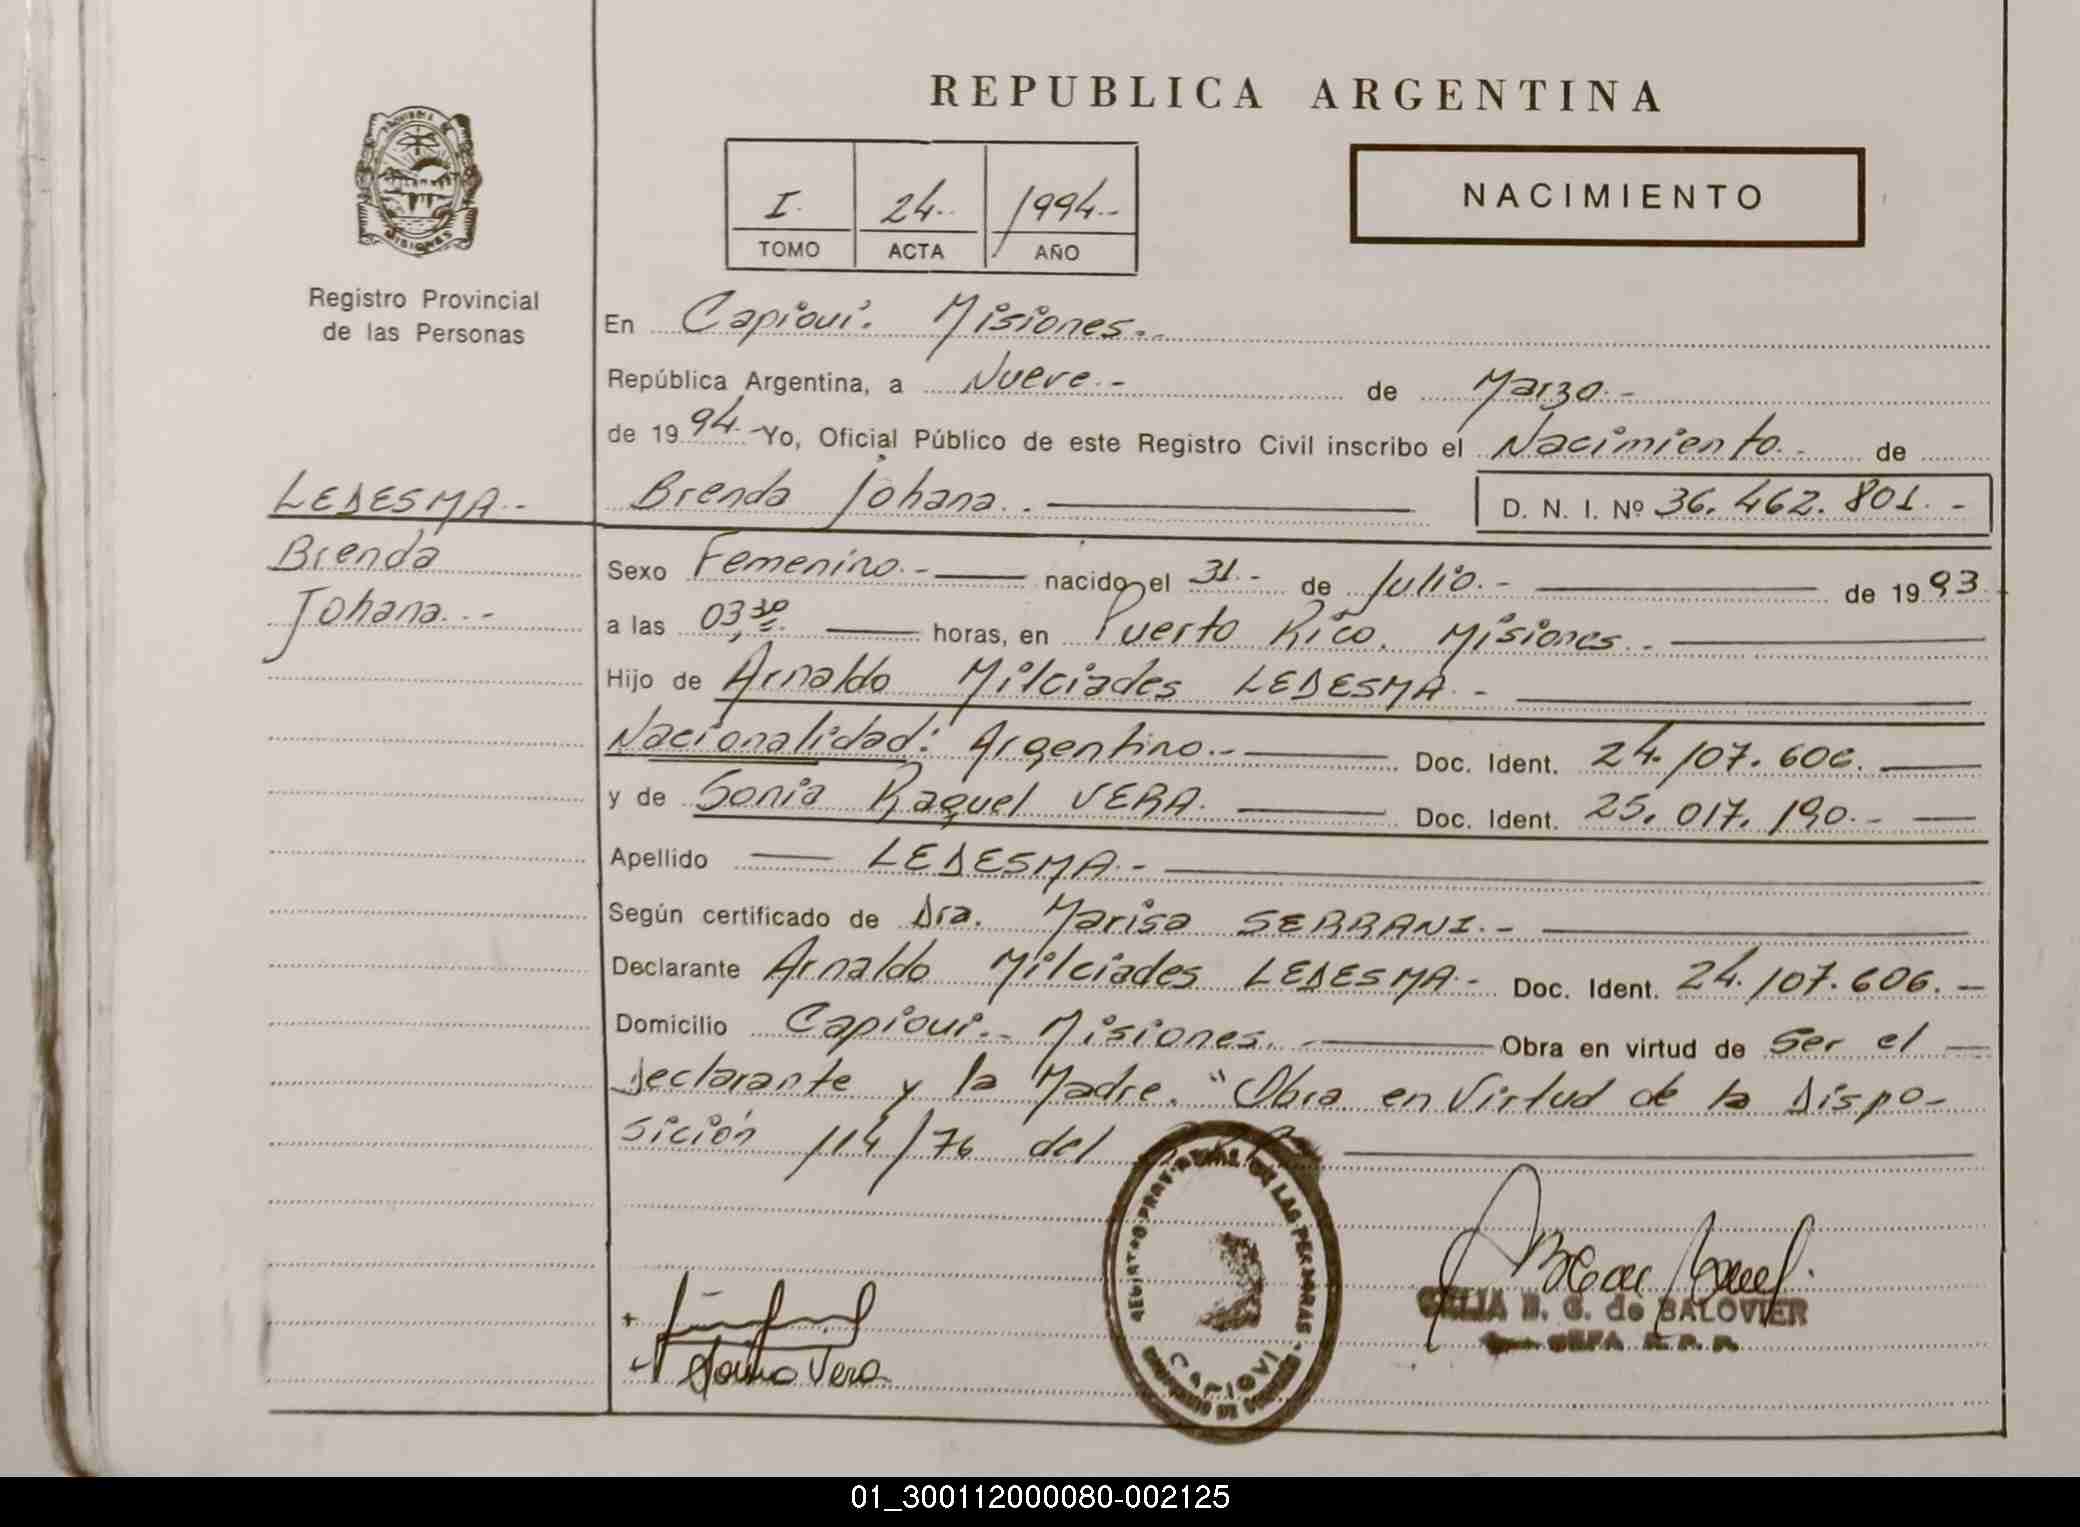 REPUBLICA ARGENTINA
NACIMIENTO
I. 24.. 1994.-
TOMO ACTA AÑO
Registro Provincial
de las Personas
En Capioui. Misiones..
República Argentina, a Nueve.- de Marzo.-
de 19 94.- Yo, Oficial Público de este Registro Civil inscribo el Nacimiento.- de
LEDESMA.-
Brenda Johana..
D. N. I. Nº 36.462.801.-
Brenda
Johana..-
Sexo Femenino.- nacido el 31.- de Julio.- de 19 93
a las 03,30 horas, en Puerto Rico. Misiones..
Hijo de Arnaldo Milciades LEDESMA.-
Nacionalidad: Argentino.- Doc. Ident. 24.107.606.
y de Sonia Raquel VERA. Doc. Ident. 25.017.190.-
Apellido LEDESMA.-
Según certificado de Dra. Marisa SERRANI.-
Declarante Arnaldo Milciades LEDESMA.- Doc. Ident. 24.107.606.-
Domicilio Capioui.- Misiones. Obra en virtud de Ser el
Declarante y la Madre. "Obra en Virtud de la Dispo-
sición 114/76 del
REGISTRO PROVINCIAL DE LAS PERSONAS
CAPIOVI
Sonia Vera
CELIA E. G. de BALOVIER
JEFA R.P.P.
01_300112000080-002125